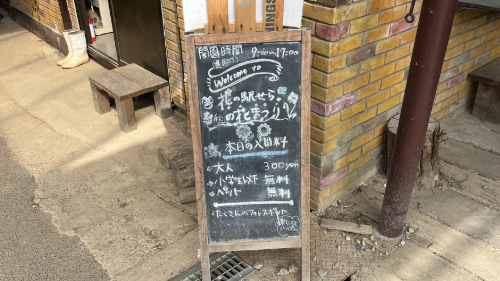 開園時間 9:00〜17:00
Welcome
TO
花の駅せら
の花まつり
本日の入園料
大人 300円
小学生以下 無料
ペット 無料
たくさんのフォトスポット